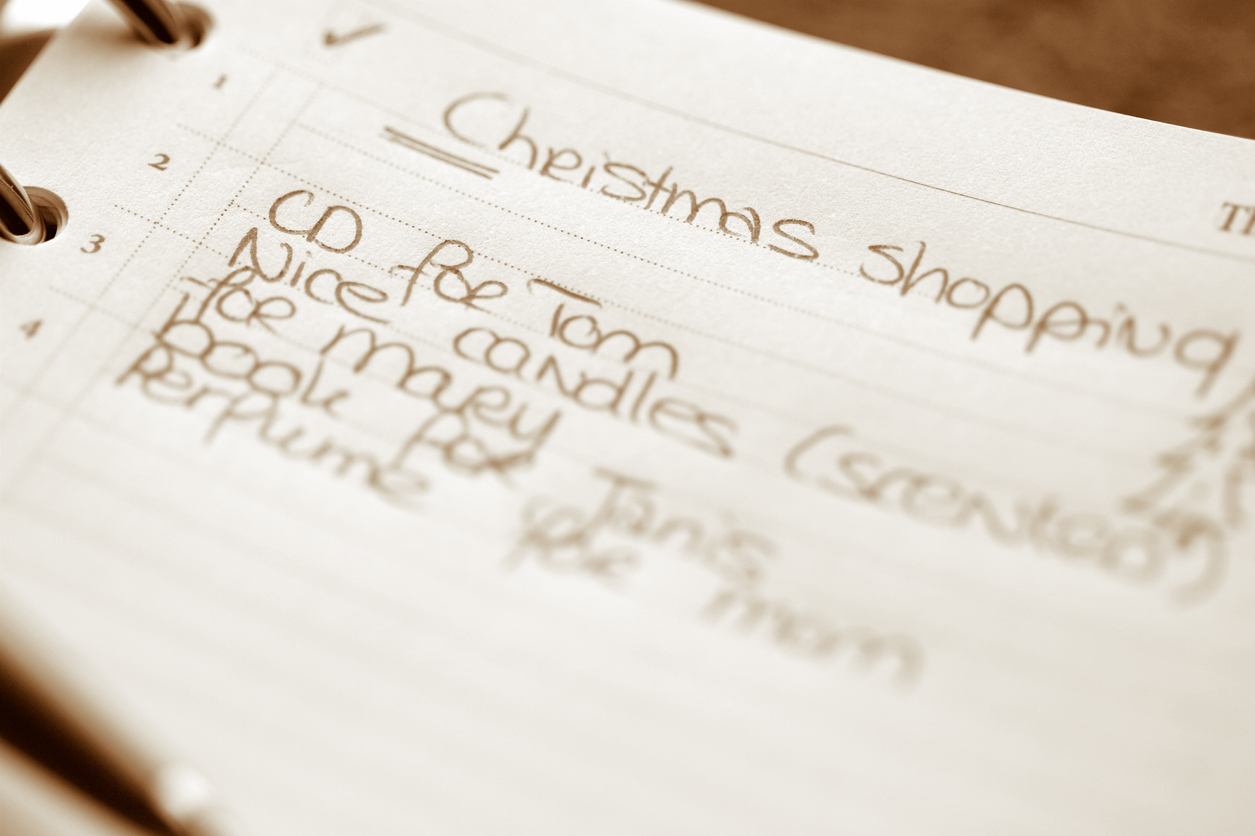 ✓
Christmas shopping
1
2
CD for Tom
3
Nice candles (scented)
for mary
4
book for Janis
Perfume for mom